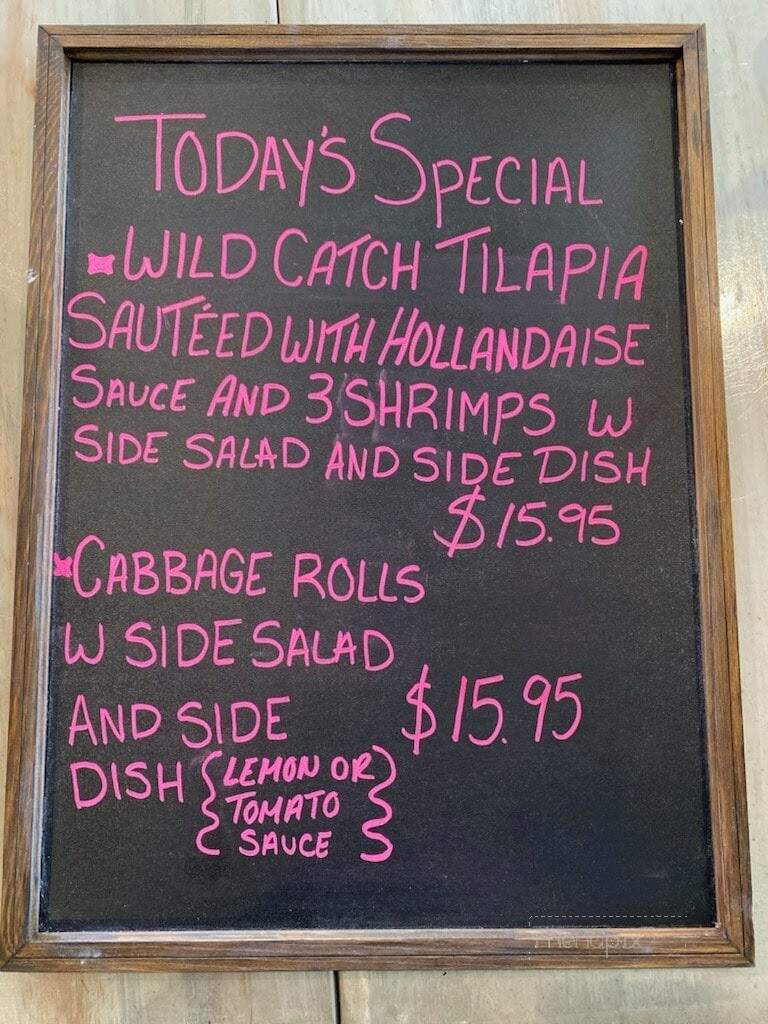 TODAY'S SPECIAL
WILD CATCH TILAPIA
SAUTÉED WITH HOLLANDAISE
SAUCE AND 3 SHRIMPS W
SIDE SALAD AND SIDE DISH
$15.95
CABBAGE ROLLS
W SIDE SALAD
AND SIDE $15.95
DISH {LEMON OR
TOMATO
SAUCE}
menupix